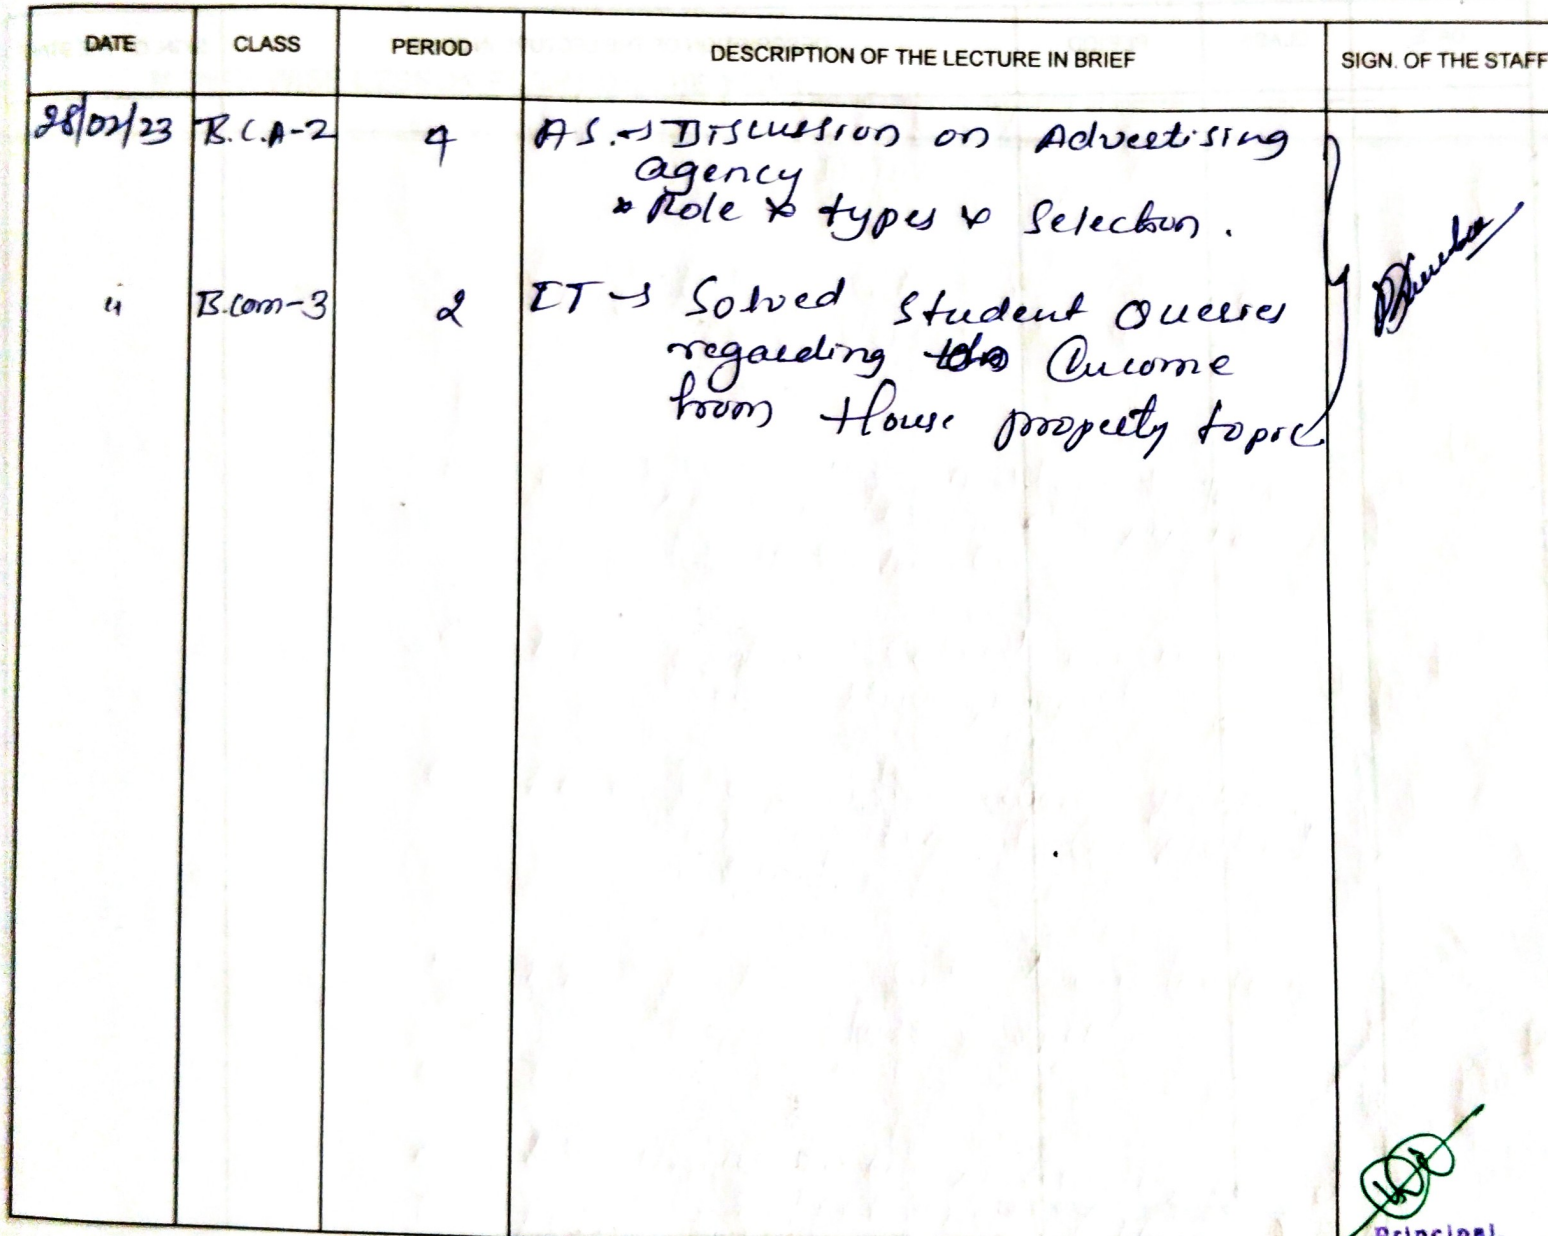 DATE CLASS PERIOD DESCRIPTION OF THE LECTURE IN BRIEF SIGN. OF THE STAFF
28/02/23 B.C.A-2 4 AS. → Discussion on Advertising
agency
* Role * types * Selection.
" B.com-3 2 IT → Solved Student Queries
regarding Income
from House property topic
Principal